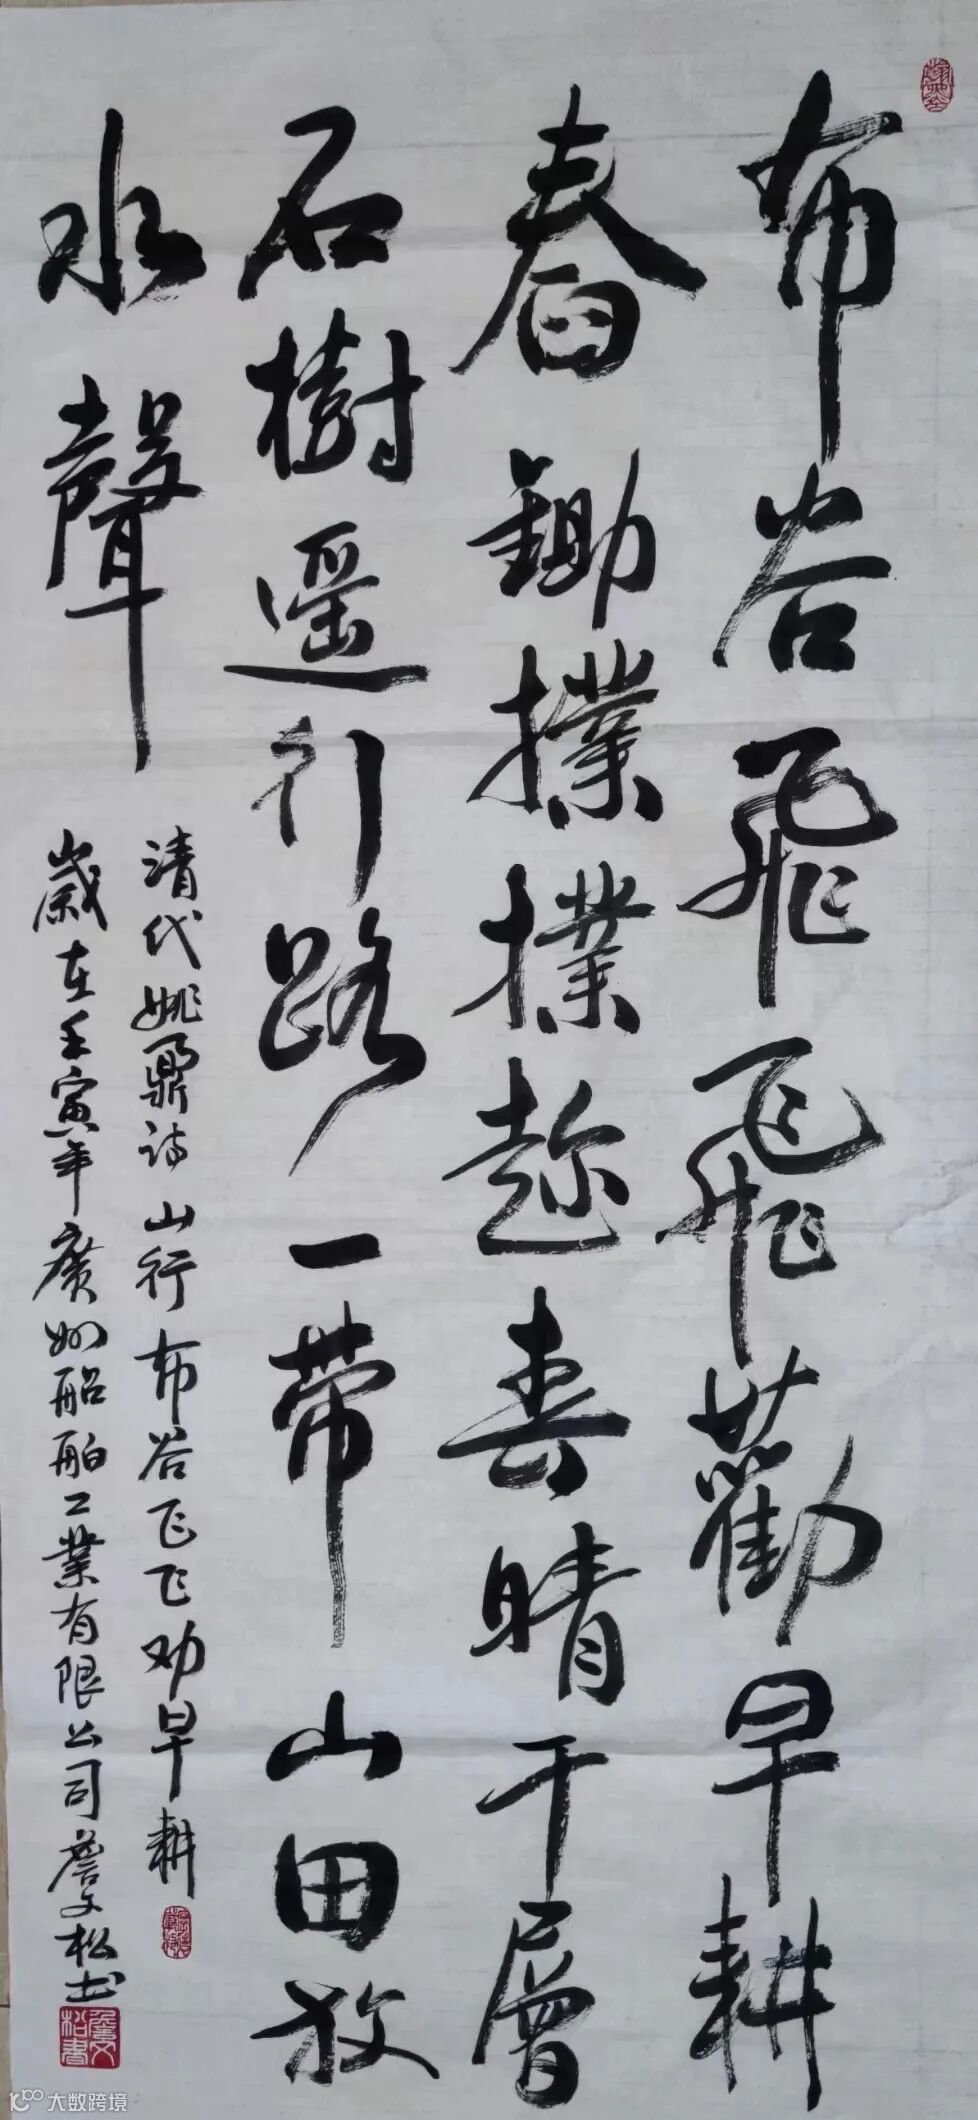 布谷飛飛勸早耕
舂鋤撲撲趁春晴千層
石樹遥行路一带山田放
水聲
清代姚鼐诗山行布谷飞飞劝早耕
歲在壬寅年廣州船舶工業有限公司詹文松书
大数跨境